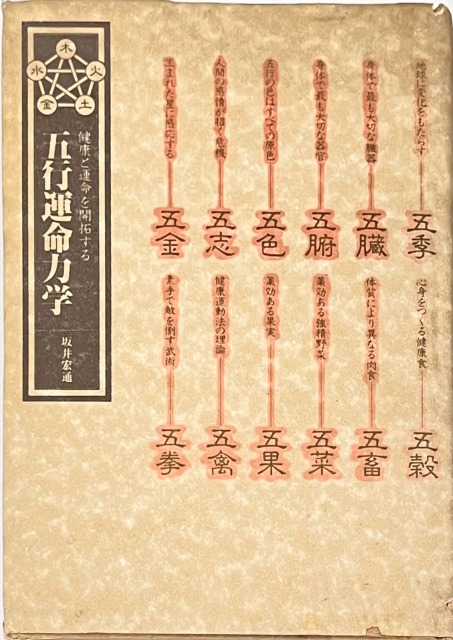 地球に変化をもたらす
五季
身体で最も大切な臓器
五臓
身体で最も大切な器官
五腑
五行の色はすべての原色
五色
人間の感情が招く危機
五志
生まれた星に感応する
五金
心身をつくる健康食
五穀
体質により異なる肉食
五畜
薬効ある強精野菜
五菜
薬効ある果実
五果
健康運動法の理論
五禽
素手で敵を倒す武術
五拳
木
火
土
金
水
健康と運命を開拓する
五行運命力学
坂井宏通